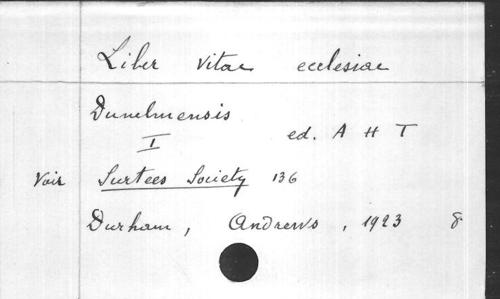 Liber vitae ecclesiae
Dunelmensis
I ed. A H T
Voir Surtees Society 136
Durham, Andrews, 1923 8